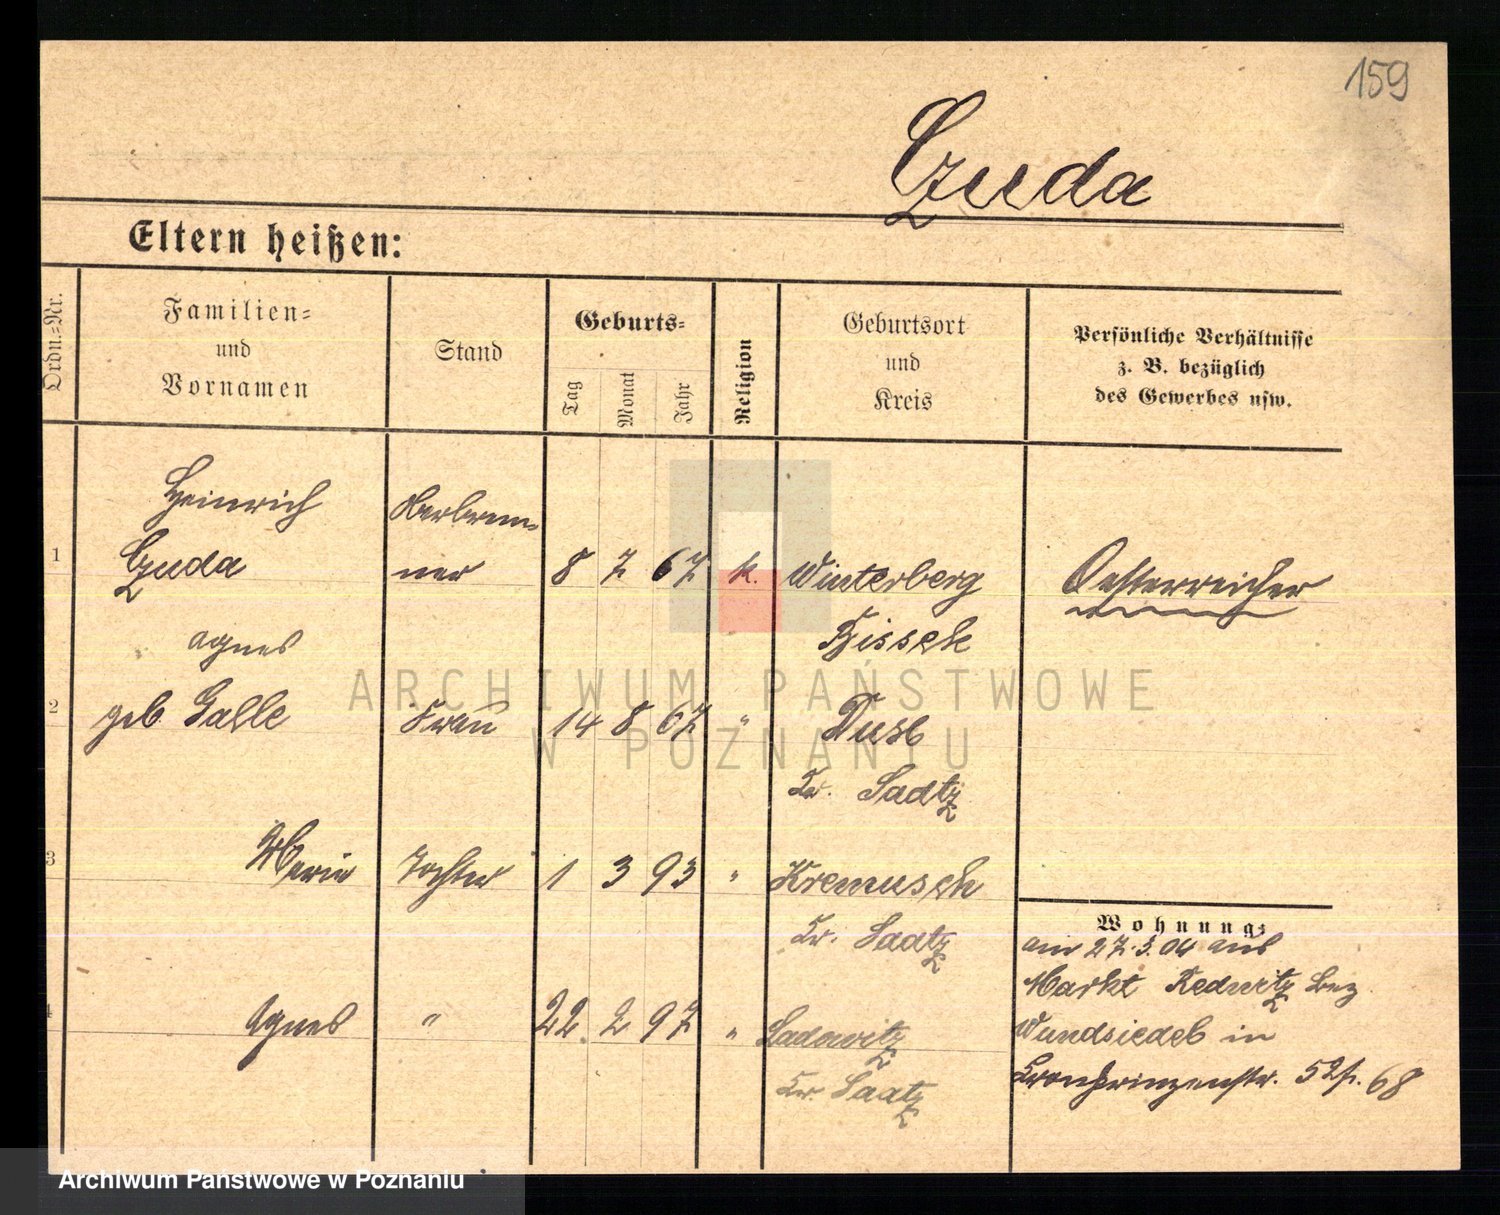 159
Czuda
Eltern heißen:
Ordn.=Nr.
Familien=
und
Vornamen
Stand
Geburts=
Tag
Monat
Jahr
Religion
Geburtsort
und
Kreis
Persönliche Verhältnisse
z. B. bezüglich
des Gewerbes usw.
1
Heinrich
Czuda
ner
8 7 67 k. Winterberg
Oesterreicher
2
Agnes
geb. Galle
Frau
14 8 67 "
Kr.
3
Marie
Tochter
1 3 93 "
Kremusch
Kr. Saatz
4
Agnes
"
22. 2 97 "
Ladowitz
Kr. Saatz
Wohnung:
am 27.3.04 aus
Markt Redwitz Bez.
Wundsiedel in
Kronprinzenstr. 52/. 68
ARCHIWUM PAŃSTWOWE
W POZNANIU
Archiwum Państwowe w Poznaniu